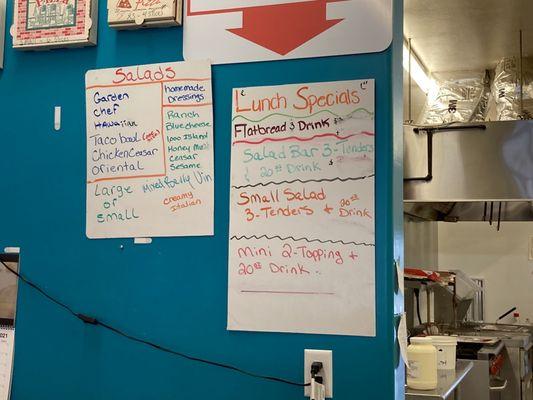 Pizza
Salads
Garden
chef
Hawaiian
Taco bowl
Chicken Ceasar
Oriental
Large
or
Small
homemade
Dressings
Ranch
Blue cheese
1000 Island
Honey Must
Ceasar
Sesame
creamy
italian
Lunch Specials
Flatbread & Drink
Salad Bar 3-Tenders
& 20oz Drink
Small Salad
3-Tenders + 20oz Drink
Mini 2-Topping +
20oz Drink